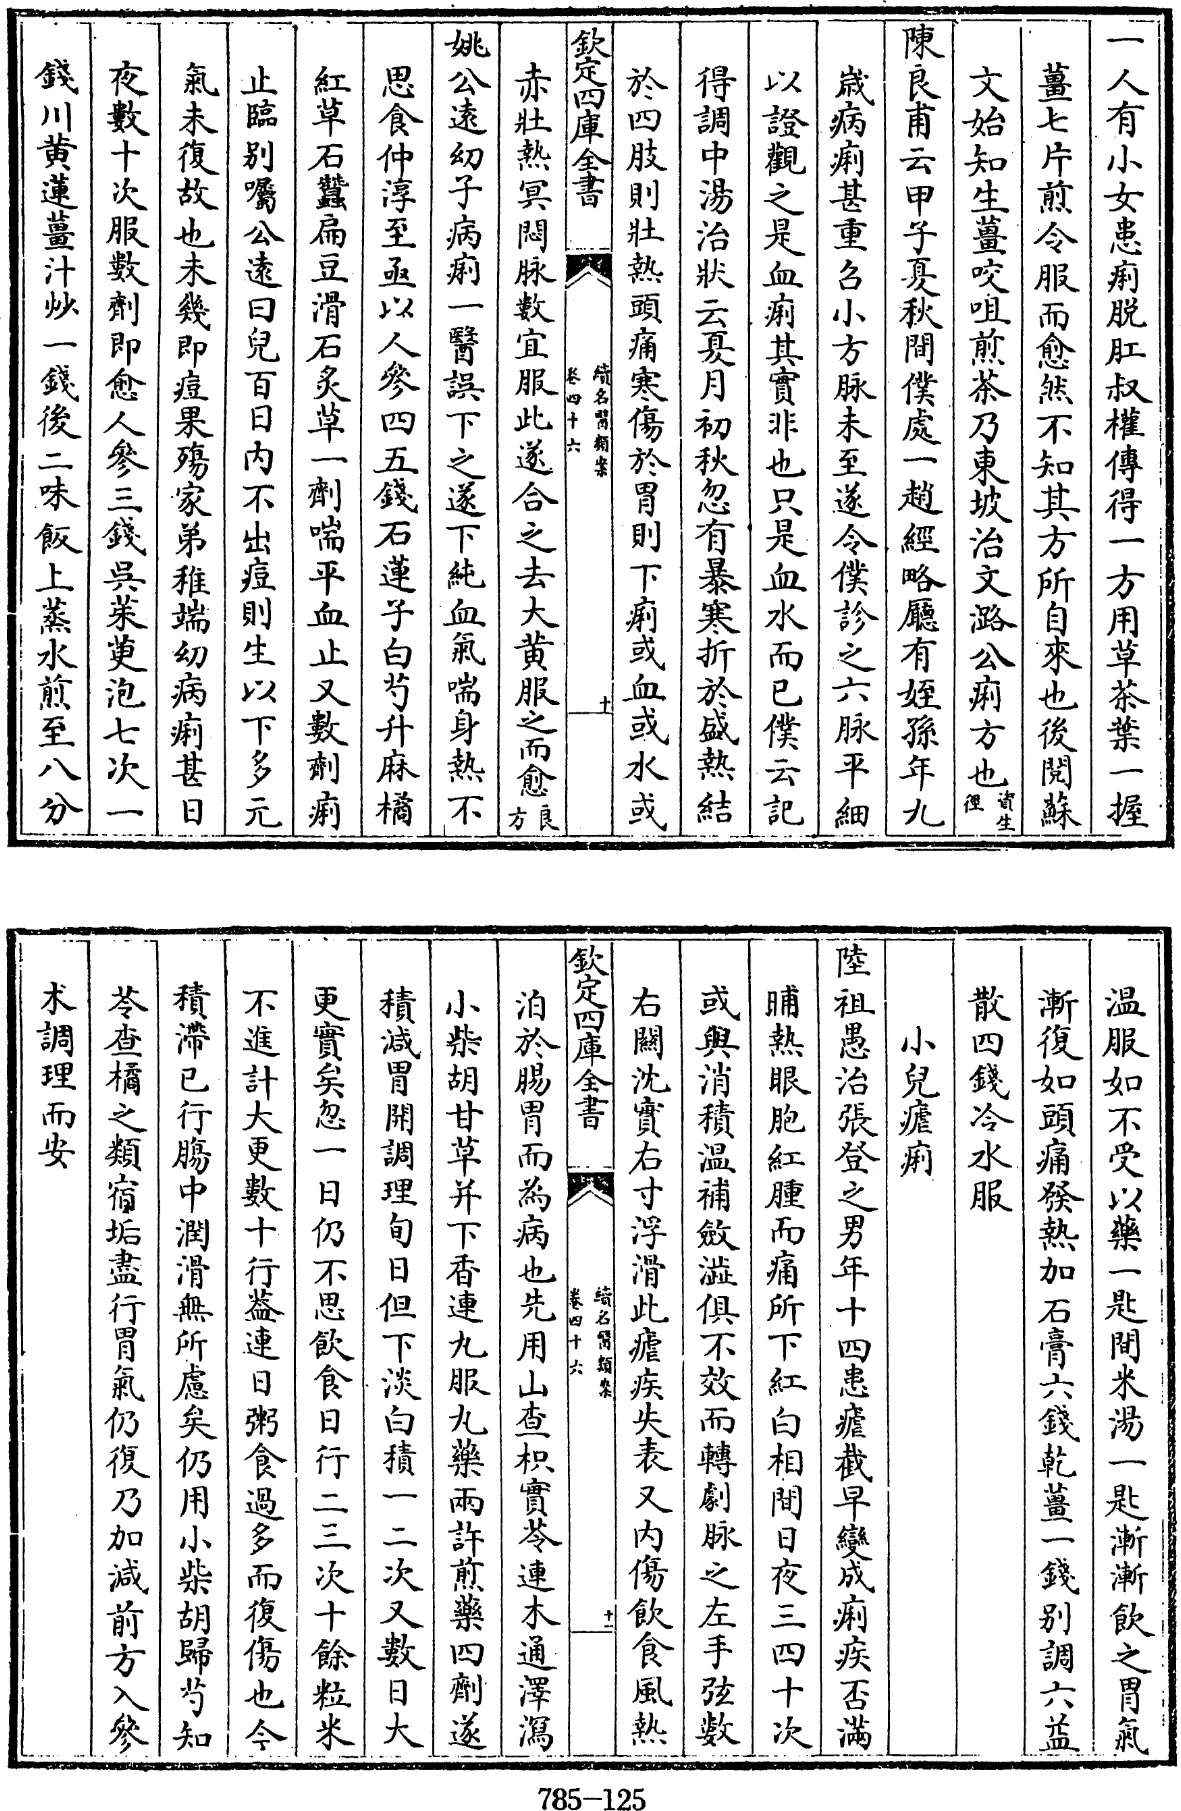 一人有小女患痢脱肛叔權傳得一方用草茶葉一握
薑七片煎令服而愈然不知其方所自來也後閱蘇
文始知生薑㕮咀煎茶乃東坡治文潞公痢方也資生徑
陳良甫云甲子夏秋間僕處一趙經略廳有姪孫年九
歲病痢甚重召小方脉未至遂令僕診之六脉平細
以證觀之是血痢其實非也只是血水而已僕云記
得調中湯治狀云夏月初秋忽有暴寒折於盛熱結
於四肢則壯熱頭痛寒傷於胃則下痢或血或水或
欽定四庫全書
續名醫類案
卷四十六
十
赤壯熱冥悶脉數宜服此遂合之去大黄服之而愈良方
姚公遠幼子病痢一醫誤下之遂下純血氣喘身熱不
思食仲淳至亟以人參四五錢石蓮子白芍升麻橘
紅草石蠶扁豆滑石炙草一劑喘平血止又數劑痢
止臨别囑公遠曰兒百日内不出痘則生以下多元
氣未復故也未幾即痘果殤家弟稚端幼病痢甚日
夜數十次服數劑即愈人參三錢呉茱萸泡七次一
錢川黄蓮薑汁炒一錢後二味飯上蒸水煎至八分
温服如不受以藥一匙間米湯一匙漸漸飲之胃氣
漸復如頭痛發熱加石膏六錢乾薑一錢别調六益
散四錢冷水服
小兒瘧痢
陸祖愚治張登之男年十四患瘧截早變成痢疾否滿
晡熱眼胞紅腫而痛所下紅白相間日夜三四十次
或與消積温補斂澁俱不效而轉劇脉之左手弦數
右關沈實右寸浮滑此瘧疾失表又内傷飲食風熱
欽定四庫全書
續名醫類案
卷四十六
十一
泊於腸胃而為病也先用山查枳實芩連木通澤瀉
小柴胡甘草并下香連丸服丸藥兩許煎藥四劑遂
積減胃開調理旬日但下淡白積一二次又數日大
更實矣忽一日仍不思飲食日行二三次十餘粒米
不進計大更數十行葢連日粥食過多而復傷也今
積滯已行腸中潤滑無所慮矣仍用小柴胡歸芍知
苓查橘之類宿垢盡行胃氣仍復乃加減前方入參
术調理而安
785-125